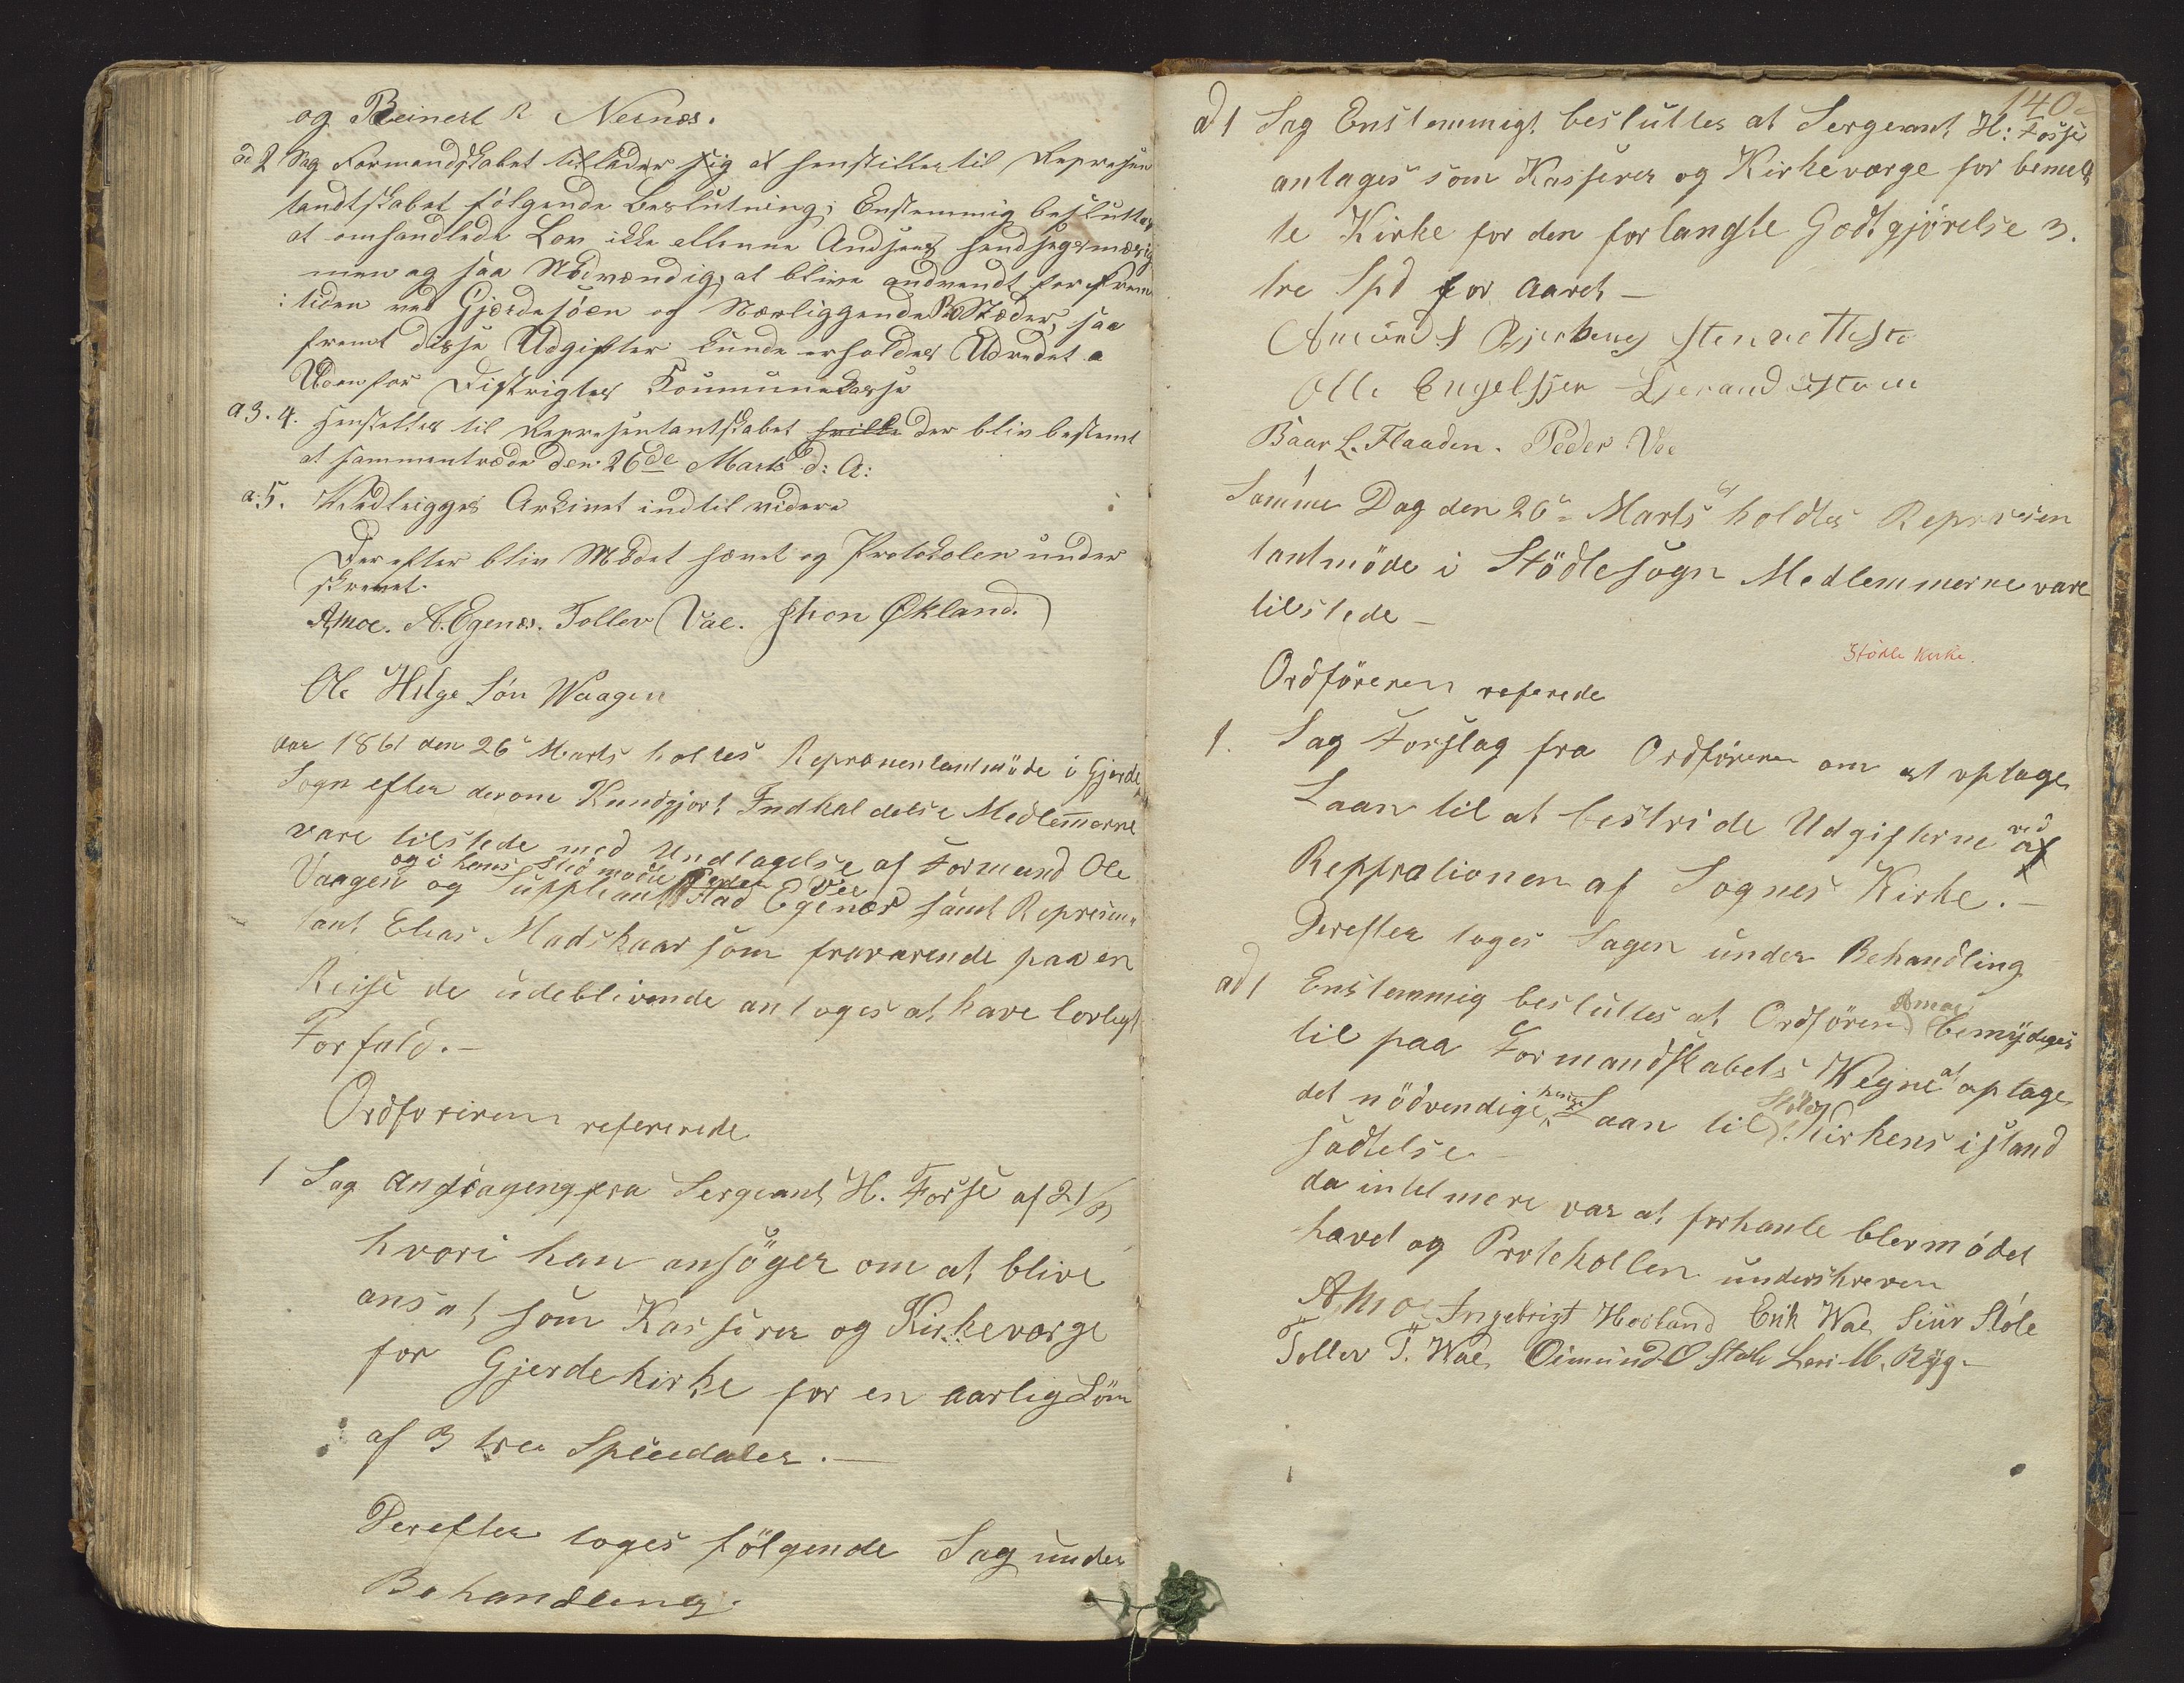 og Reinert R Nernæs.
ad 2 Sag Formandskabet tillader sig at henstilles til Represen
tandtskabet følgende Beslutning; Enstemmig besluttes
at omhandlede Lov ikke allenne Andsees hendsegsmæsig
men og saa Nødvændig, at blive andvendt for Frem
:tiden ved Gjerdesöen og Nærliggende Stæder, saa
fremt disse Udgifter kunde erholdes Udredet a
Udenfor Distrigtes Kommunekasse
a 3. 4. Henstilles til Representantskabet hvilke der bliv bestemt
at sammentræde den 26de Marts d: A:
a 5. Nedlægges Arkivet indtil videre
Derefter bliv Mödet hævet og Protokolen under
skrevet.
Amoe. A. Egenæs. Tollev Vae. Jhon Økland.
Ole Helge Sön Waagen
Aar 1861 den 26e Marts holtes Repræsentantmöde i Gjerde
Sogn efter derom Kundgjort Indkaldelse Medlemmerne
vare tilstede med Undtagelse af Formand Ole
og i hans Sted mødte Peder Vee
Vaagen og Suppleant Stad Egenæs samt Represen
tant Elias Madskaar som fraværende paa en
Reise de udeblivende antoges at have lovligt
Forfald.-
Ordføreren refererede
1 Sag Andrageng fra Sergeant H. Fosse af 21/3
hvori han ansøger om at blive
ansat som Kasserer og Kirkeværge
for Gjerde kirke for en aarlig Löm
af 3 tre Speciedaler. -
Derefter toges følgende Sag under
Behandling.
140
ad 1 Sag Enstemmigt besluttes at Sergeant H: Fosse
antages som Kasserer og Kirkeværge for bemelt
te Kirke for den forlangte Godtgjörelse 3.
tre Spd for Aaret -
Amund Bjerkenes
Olle Engelsjer
Baar L. Flaaden. Peder Vee
Samme Dag den 26e Marts holdtes Represen
tantmöde i Stödle sogn Medlemmerne vare
tilstede -
Stödle Kirke.
Ordföreren referede
1. Sag Forslag fra Ordföreren om at optage
Laan til at bestride Udgifterne ved af
Reppration af Sognes Kirke. -
Derefter toges Sagen under Behandling
ad 1 Enstemmig besluttes at Ordfören Amoe bemydiges
til paa Formandskabets Vegne at optage
det nödvendige Laan til Stödle Kirkens istand
sædtelse -
da intet mere var at forhanle blev mödet
hævet og Protokollen underskreven
Amoe Ingebrigt Hovland Erik Wae Siur Støle
Tollev T. Wae Oimund O Støle Lars M. Ryg.